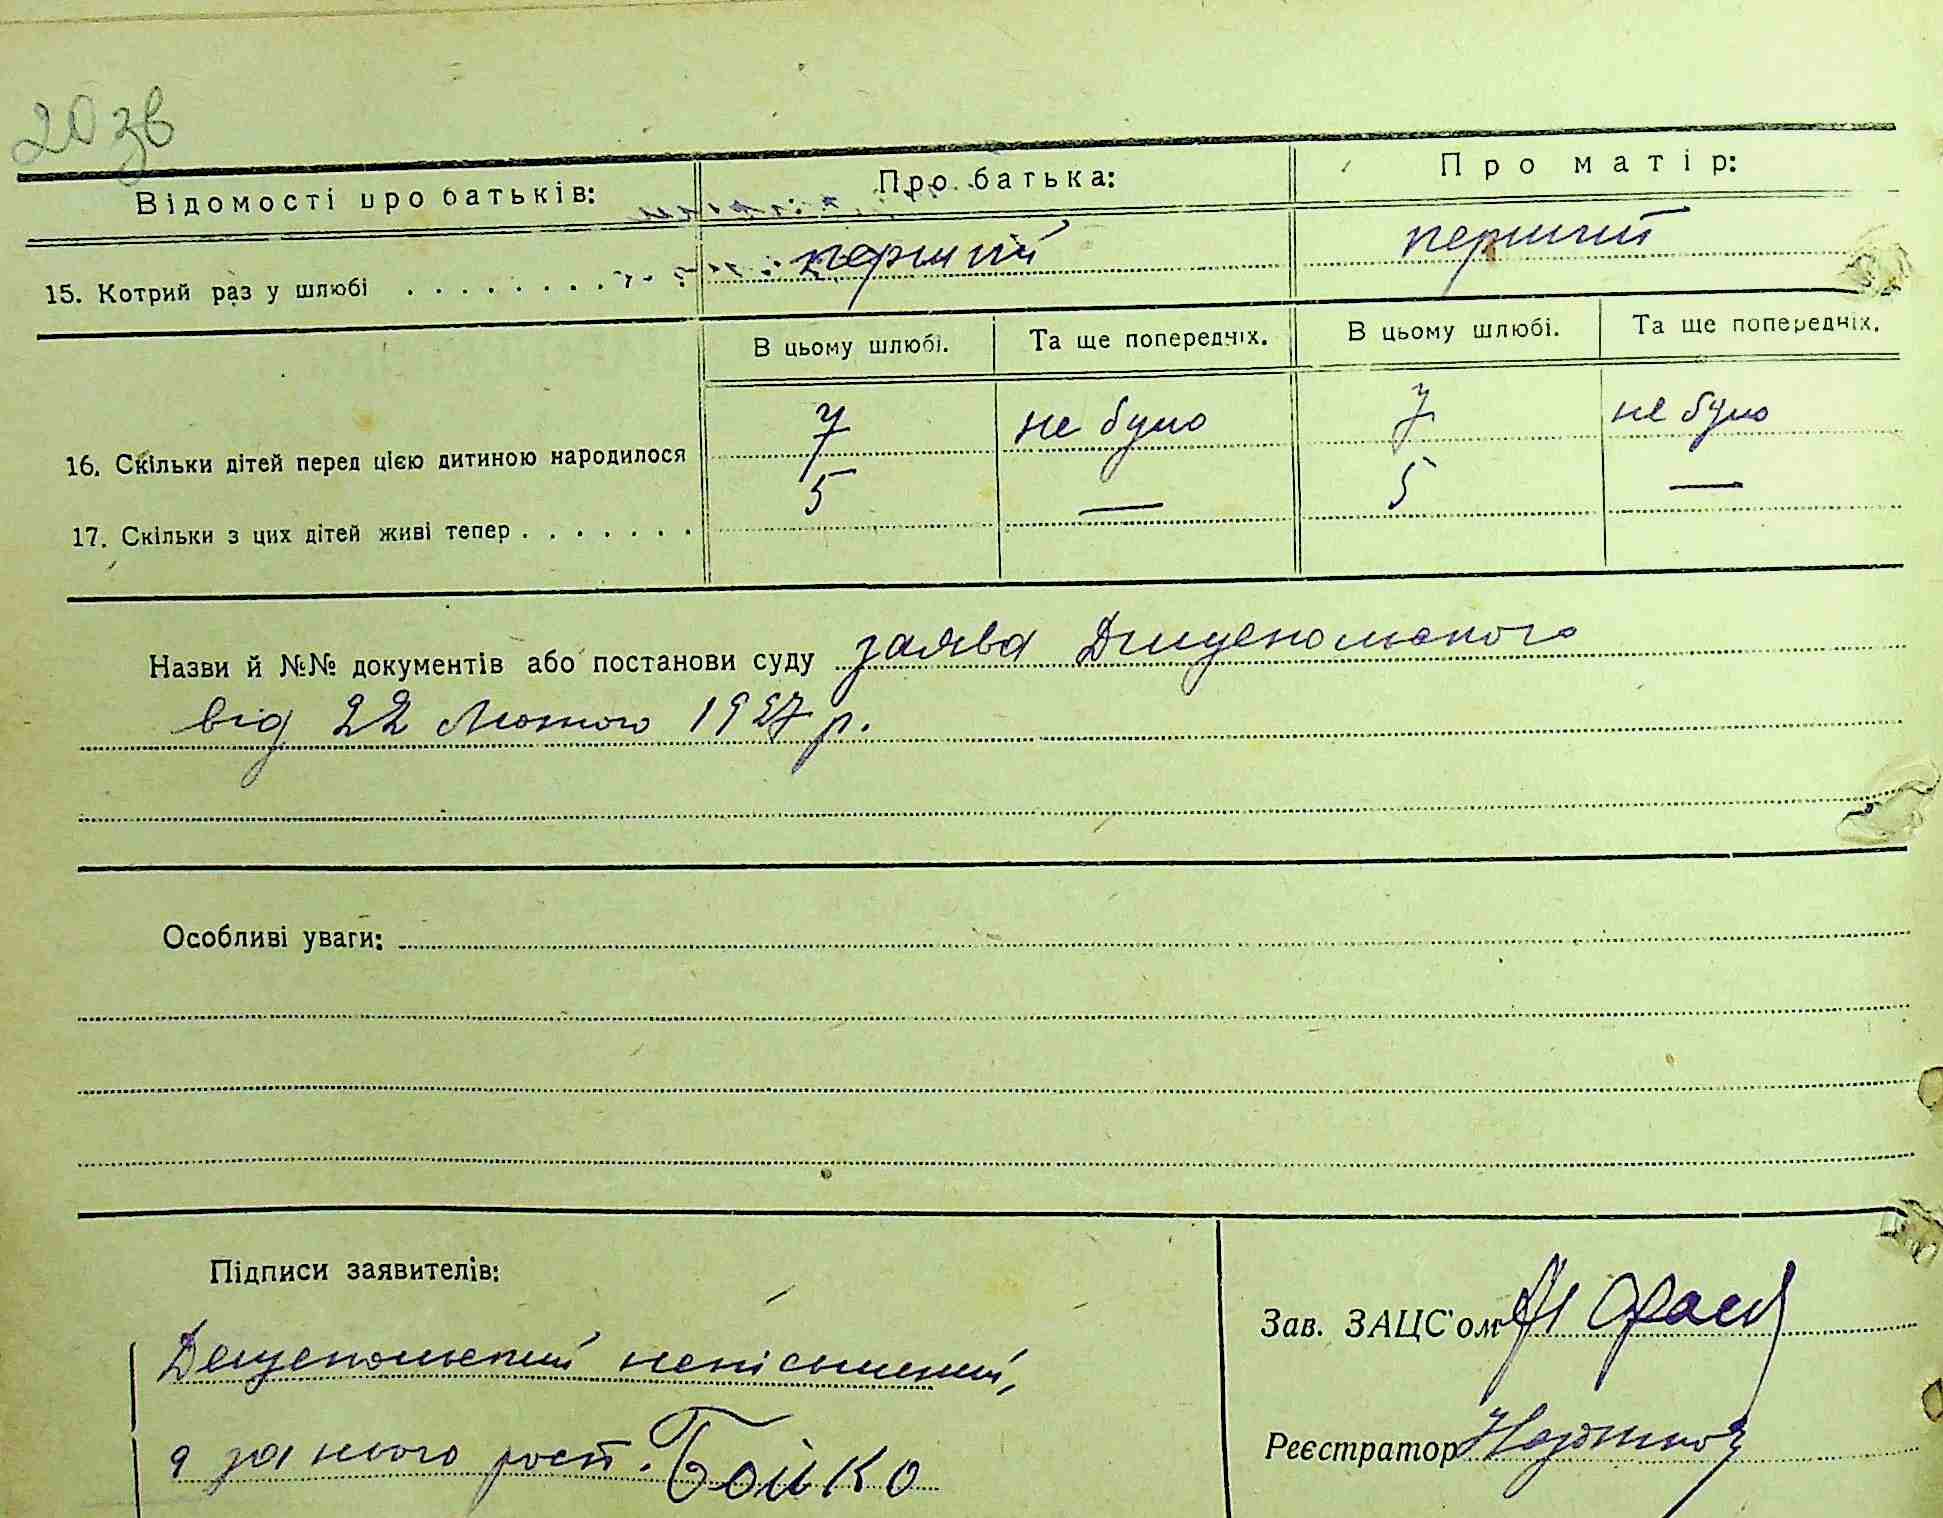 20 зв
Відомості про батьків: Про батька: Про матір:
15. Котрий раз у шлюбі . . . . . . . . перший перший
В цьому шлюбі. Та ще попередніх. В цьому шлюбі. Та ще попередніх.
16. Скільки дітей перед цією дитиною народилося 7 не було 7 не було
17. Скільки з цих дітей живі тепер . . . . . . . 5 — 5 —
Назви й №№ документів або постанови суду заява
від 22 Лютого 1927 р.
Особливі уваги:
Підписи заявителів:
Зав. ЗАЦС'ом
неписьмений,
а за нього розп. Бойко
Реєстратор